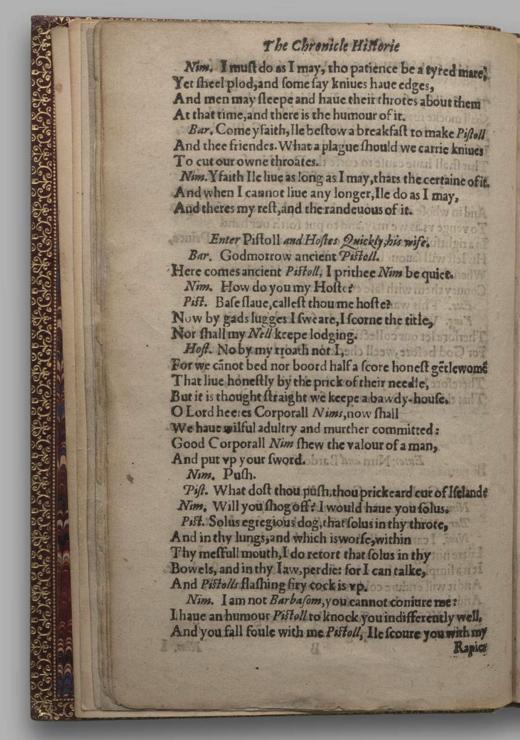 The Chronicle Historie
Nim. I must do as I may, tho patience be a tyred mare,
Yet sheel plod, and some say kniues haue edges,
And men may sleepe and haue their throtes about them
At that time, and there is the humour of it.
Bar. Come yfaith, Ile bestow a breakfast to make Pistoll
And thee friendes. What a plague should we carrie kniues
To cut our owne throates.
Nim. Yfaith Ile liue as long as I may, thats the certaine of it.
And when I cannot liue any longer, Ile do as I may,
And theres my rest, and the randeuous of it.
Enter Pistoll and Hostes Quickly, his wife.
Bar. Godmorrow ancient Pistoll.
Here comes ancient Pistoll, I prithee Nim be quiet.
Nim. How do you my Hoste?
Pist. Base slaue, callest thou me hoste?
Now by gads lugges I sweare, I scorne the title,
Nor shall my Nell keepe lodging.
Host. No by my troath not I,
For we cãnot bed nor boord half a score honest gẽtlewomẽ
That liue honestly by the prick of their needle,
But it is thought straight we keepe a bawdy-house.
O Lord heeres Corporall Nims, now shall
We haue wilful adultry and murther committed:
Good Corporall Nim shew the valour of a man,
And put vp your sword.
Nim. Push.
Pist. What dost thou push, thou prickeard cur of Iseland?
Nim. Will you shog off? I would haue you solus.
Pist. Solus egregious dog, that solus in thy throte,
And in thy lungs, and which is worse, within
Thy mesfull mouth, I do retort that solus in thy
Bowels, and in thy Iaw, perdie: for I can talke,
And Pistolls flashing firy cock is vp.
Nim. I am not Barbasom, you cannot coniure me:
I haue an humour Pistoll to knock you indifferently well,
And you fall foule with me Pistoll, Ile scoure you with my
Rapier